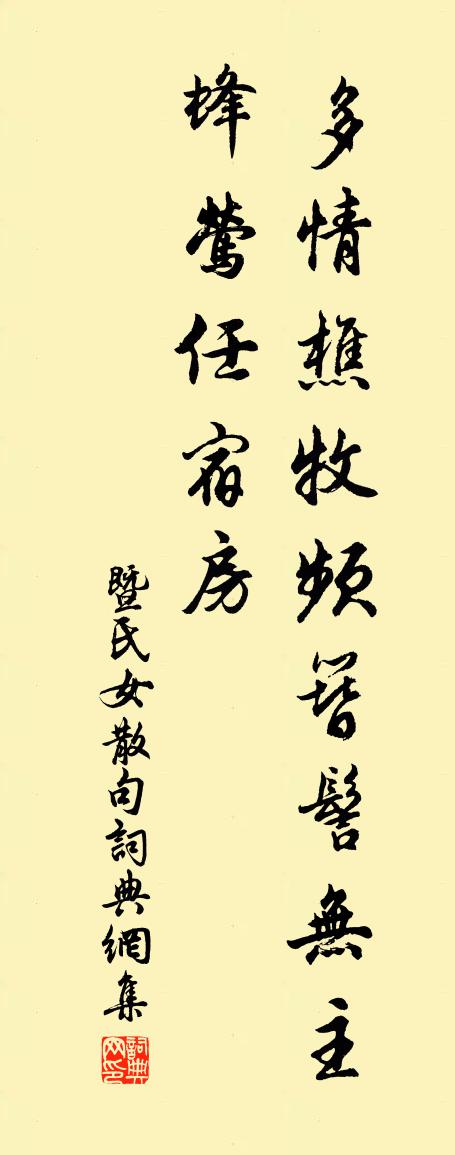 多情樵牧頻簪髻無主
蜂鶯任宿房
暨氏女散句詞典網集
詞典网印